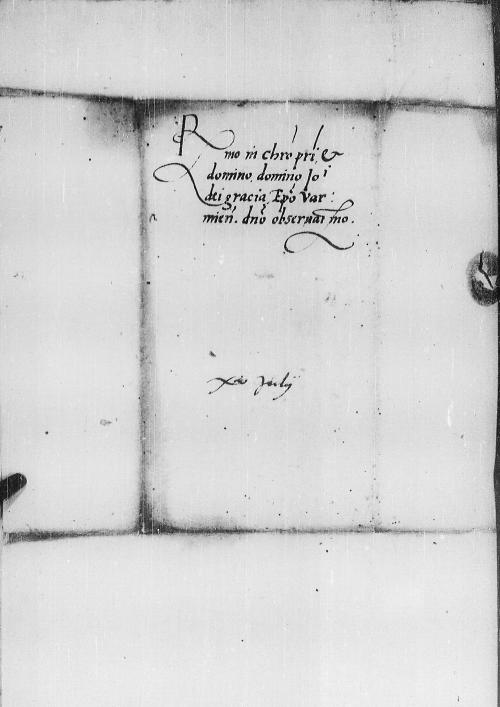 Rmo in Chro pri, &
domino, domino Jo
dei gracia Epo Var:
mien. dno observan mo.
July